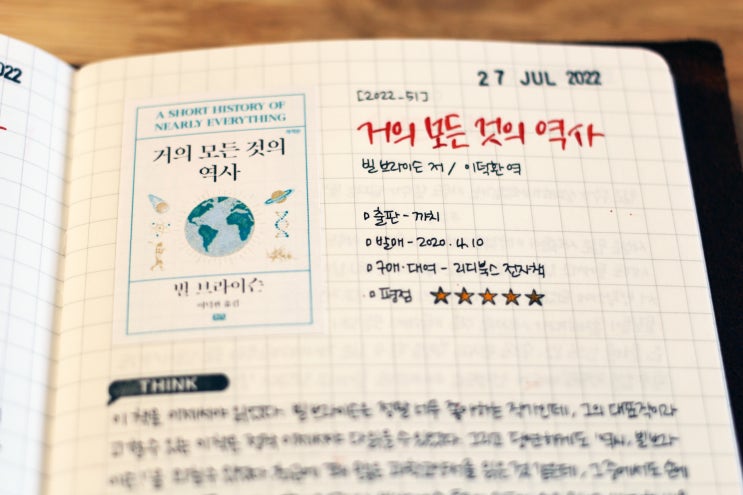 022
27 JUL 2022
[2022-51]
A SHORT HISTORY OF
NEARLY EVERYTHING
거의 모든 것의
역사
빌 브라이슨
이덕환 옮김
거의 모든 것의 역사
빌 브라이슨 저 / 이덕환 역
출판 - 까치
발매 - 2020.4.10
구매·대여 - 리디북스 전자책
평점 ★★★★★
THINK
이 책을 이제서야 읽었다. 빌 브라이슨은 정말 너무 좋아하는 작가인데, 그의 대표작이라
고 할 수 있는 이 책은 정작 이제서야 다 읽을 수 있었다. 그리고 당연하게도 '역시, 빌 브라